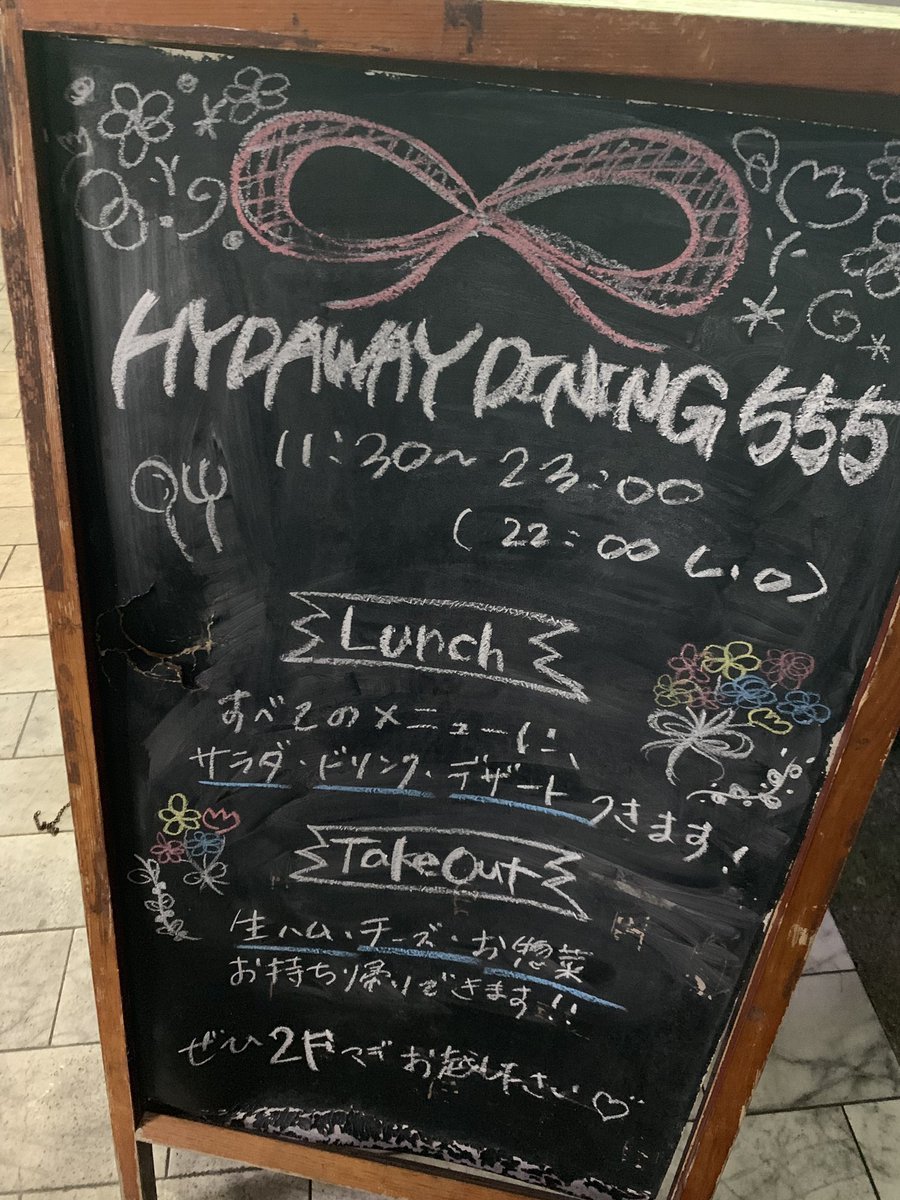 HYDAWAY DINING 555
11:30〜23:00
(22:00 L.O)
Lunch
すべてのメニューに、
サラダ・ドリンク・デザートつきます!
TakeOut
生ハム・チーズ・お惣菜
お持ち帰りできます!!
ぜひ2Fまでお越し下さい♡